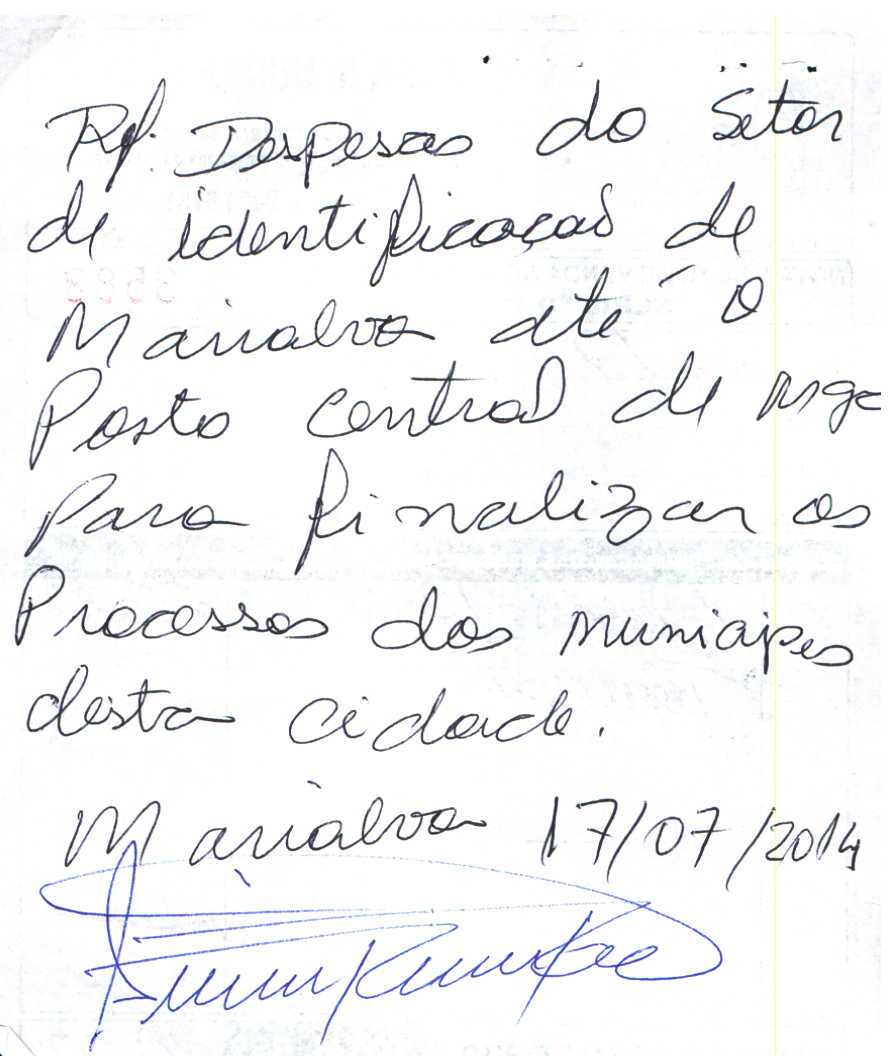 Rf. Despesas do Setor
de identificação de
Marialva até o
Posto central de mga
Para finalizar os
Processos dos municipes
desta cidade.
Marialva 17/07/2014